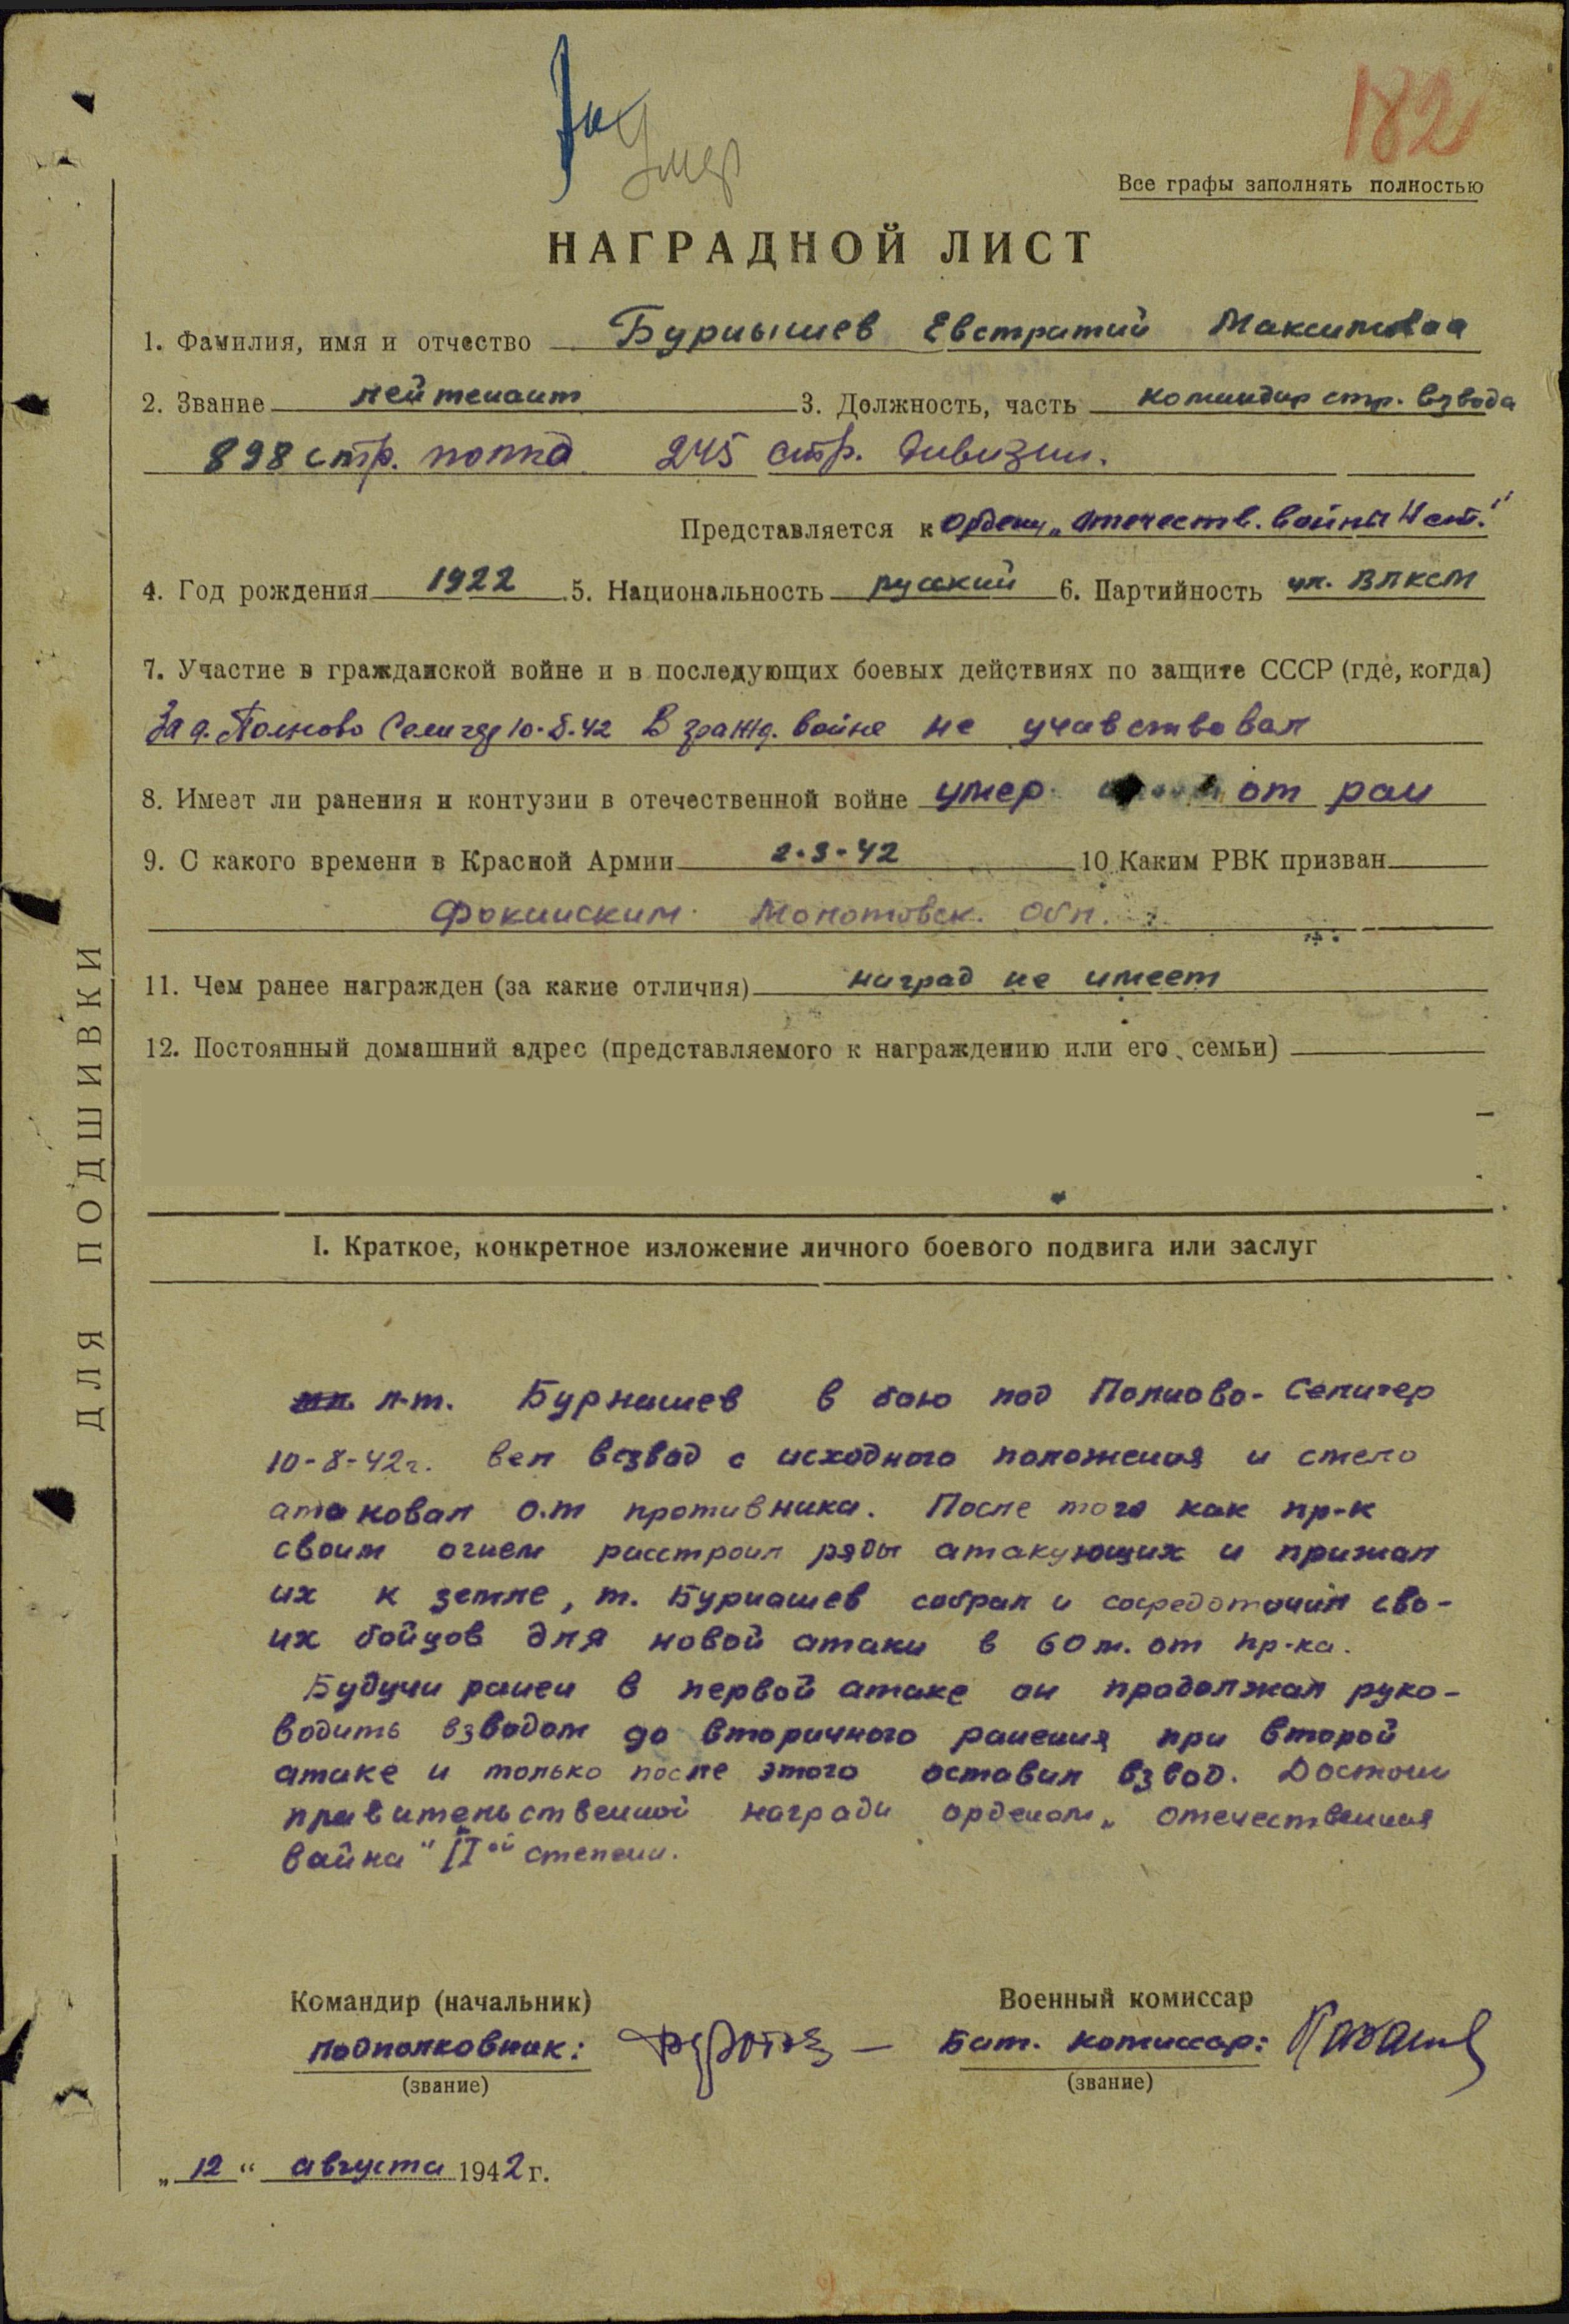 182
Умер
Все графы заполнять полностью
НАГРАДНОЙ ЛИСТ
1. Фамилия, имя и отчество Бурнышев Евстратий
2. Звание лейтенант 3. Должность, часть командир стр. взвода
898 стр. полка 245 стр. дивизии.
Представляется к ордену „Отечеств. война II ст."
4. Год рождения 1922 5. Национальность русский 6. Партийность чл. ВЛКСМ
7. Участие в гражданской войне и в последующих боевых действиях по защите СССР (где, когда)
За д. Полново Селигер 10.8.42 В гражд. войне не учавствовал
8. Имеет ли ранения и контузии в отечественной войне умер от ран
9. С какого времени в Красной Армии 2.3.42 10 Каким РВК призван
Фокинским Молотовск. Обл.
11. Чем ранее награжден (за какие отличия) наград не имеет
12. Постоянный домашний адрес (представляемого к награждению или его семьи)
ДЛЯ ПОДШИВКИ
I. Краткое, конкретное изложение личного боевого подвига или заслуг
л-т. Бурнашев в бою под Полново-Селигер
10-8-42г. вел взвод с исходного положения и смело
атаковал о.т противника. После того как пр-к
своим огнем расстроил ряды атакующих и прижал
их к земле, т. Бурнашев собрал и сосредоточил сво-
их бойцов для новой атаки в 60 м. от пр-ка.
Будучи ранен в первой атаке он продолжал руко-
водить взводом до вторичного ранения при второй
атаке и только после этого оставил взвод. Достоин
правительственной награди орденом „Отечественная
война" II ой степени.
Командир (начальник) Военный комиссар
подполковник: Бат. комиссар:
(звание) (звание)
„12" августа 1942 г.